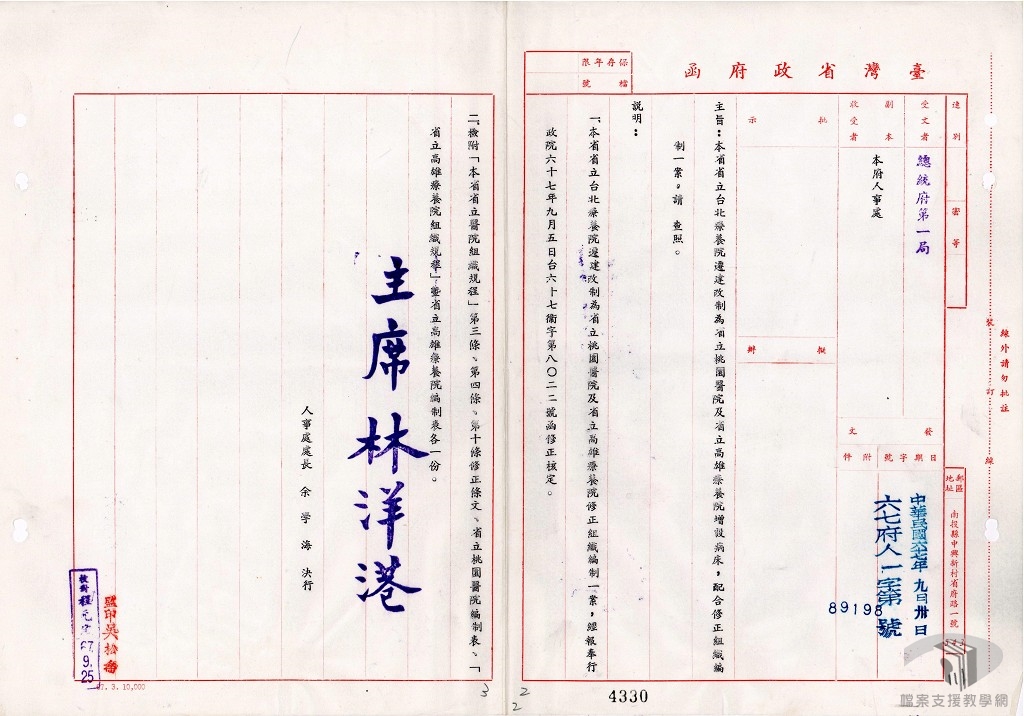 臺灣省政府函
保存年限
檔號
速別
密等
受文者
總統府第一局
副本收受者
本府人事處
批示
擬辦
發文
日期
字號
附件
中華民國六七年九月卅日
六七府人一字第89198號
郵區
地址
南投縣中興新村省府路一號
裝訂線
線外請勿批註
主旨：本省省立台北療養院遷建改制為省立桃園醫院及省立高雄療養院增設病床，配合修正組織編
制一案，請　查照。
說明：
一、本省省立台北療養院遷建改制為省立桃園醫院及省立高雄療養院修正組織編制一案，經報奉行
政院六十七年九月五日台六十七衛字第八〇二二號函修正核定。
二、檢附「本省省立醫院組織規程」第三條、第四條、第十條修正條文、省立桃園醫院編制表、「
省立高雄療養院組織規程」暨省立高雄療養院編制表各一份。
主席林洋港
人事處處長　余學海　決行
監印吳松
校對程
67.9.25
67. 3. 10,000
3
2
2
4330
檔案支援教學網